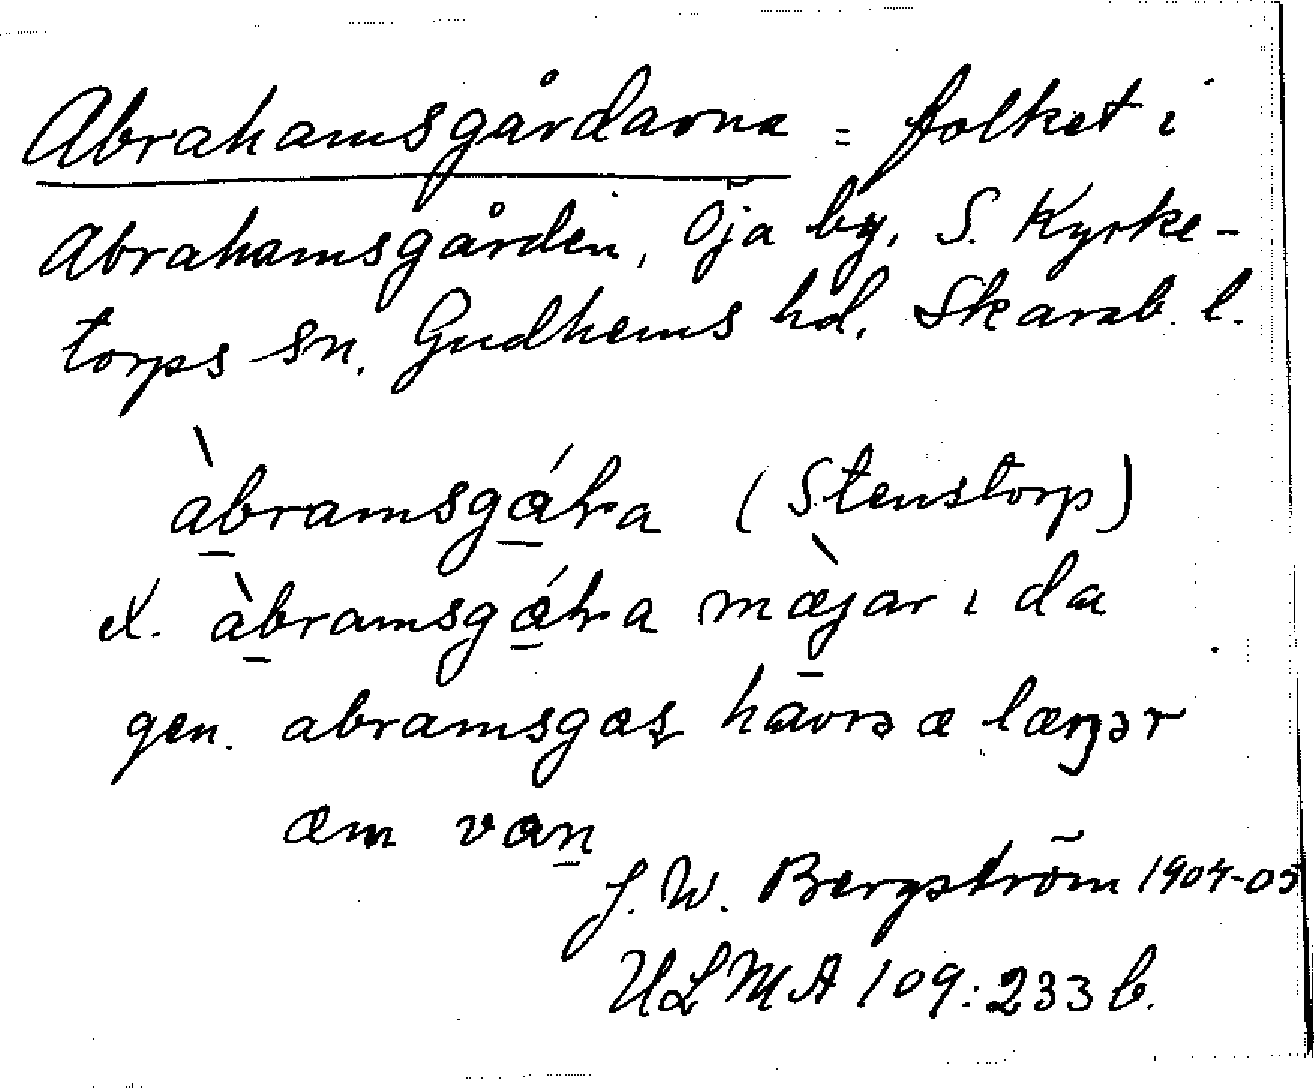 Abrahamsgårdarna = folket i
Abrahamsgården, Öja by, S. Kyrke-
torps sn. Gudhems hd. Skarab. l.
àbramsgáɦa (Stenstorp)
el. àbramsgáɦa mæ̀jar ı da
gen. abramsgaʂ havrə æ læŋər
æm van
J. W. Bergström 1904-05
ULMA 109:233 b.